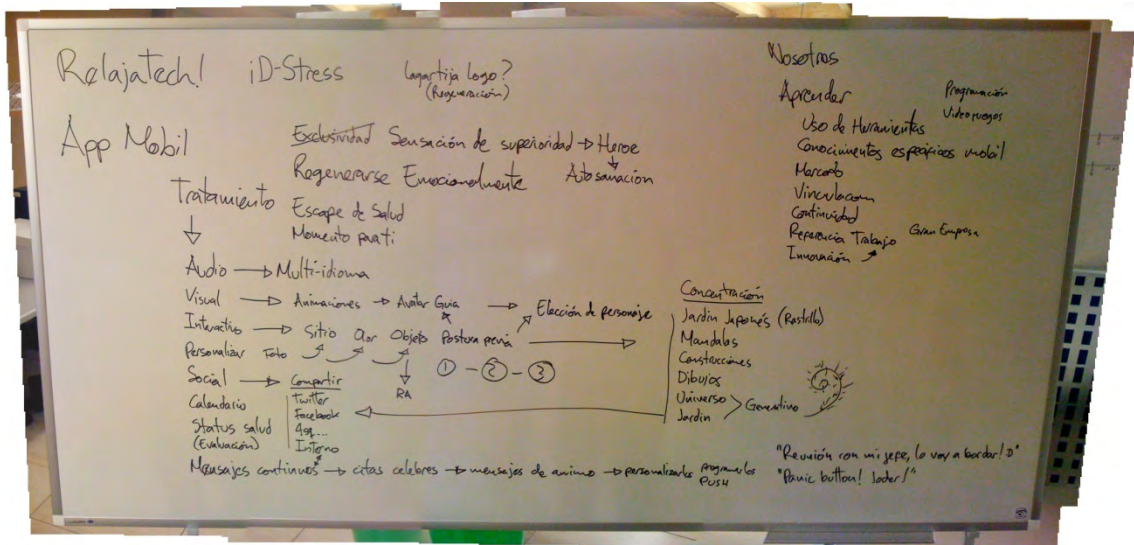 Relajatech! iD-Stress Lagartija Logo?
(Regeneración)
App Mobil
Exclusividad Sensación de superioridad → Heroe
Regenerarse Emocionalmente Autosanación
Tratamiento
Escape de Salud
Momento para ti
Audio → Multi-idioma
Visual → Animaciones → Avatar Guia → Elección de personaje
Interactivo → Sitio Olor Objeto Postura previa
Personalizar Foto
RA
① - ② - ③
Social → Compartir
Calendario
Status salud
(Evaluación)
Twitter
Facebook
4sq...
Interno
Mensajes continuos → citas celebres → mensajes de animo → personalizarlos programarlos
PUSH
Concentración
Jardin Japonés (Rastrillo)
Mandalas
Construcciones
Dibujos
Universo
Jardin
Generativo
Nosotros
Aprender
Programación
Videojuegos
Uso de Herramientas
Conocimientos específicos mobil
Mercado
Vinculacion
Continuidad
Referencia Trabajo Gran Empresa
Innovación
"Reunión con mi jefe, lo voy a bordar! :D"
"Panic button! Joder!"